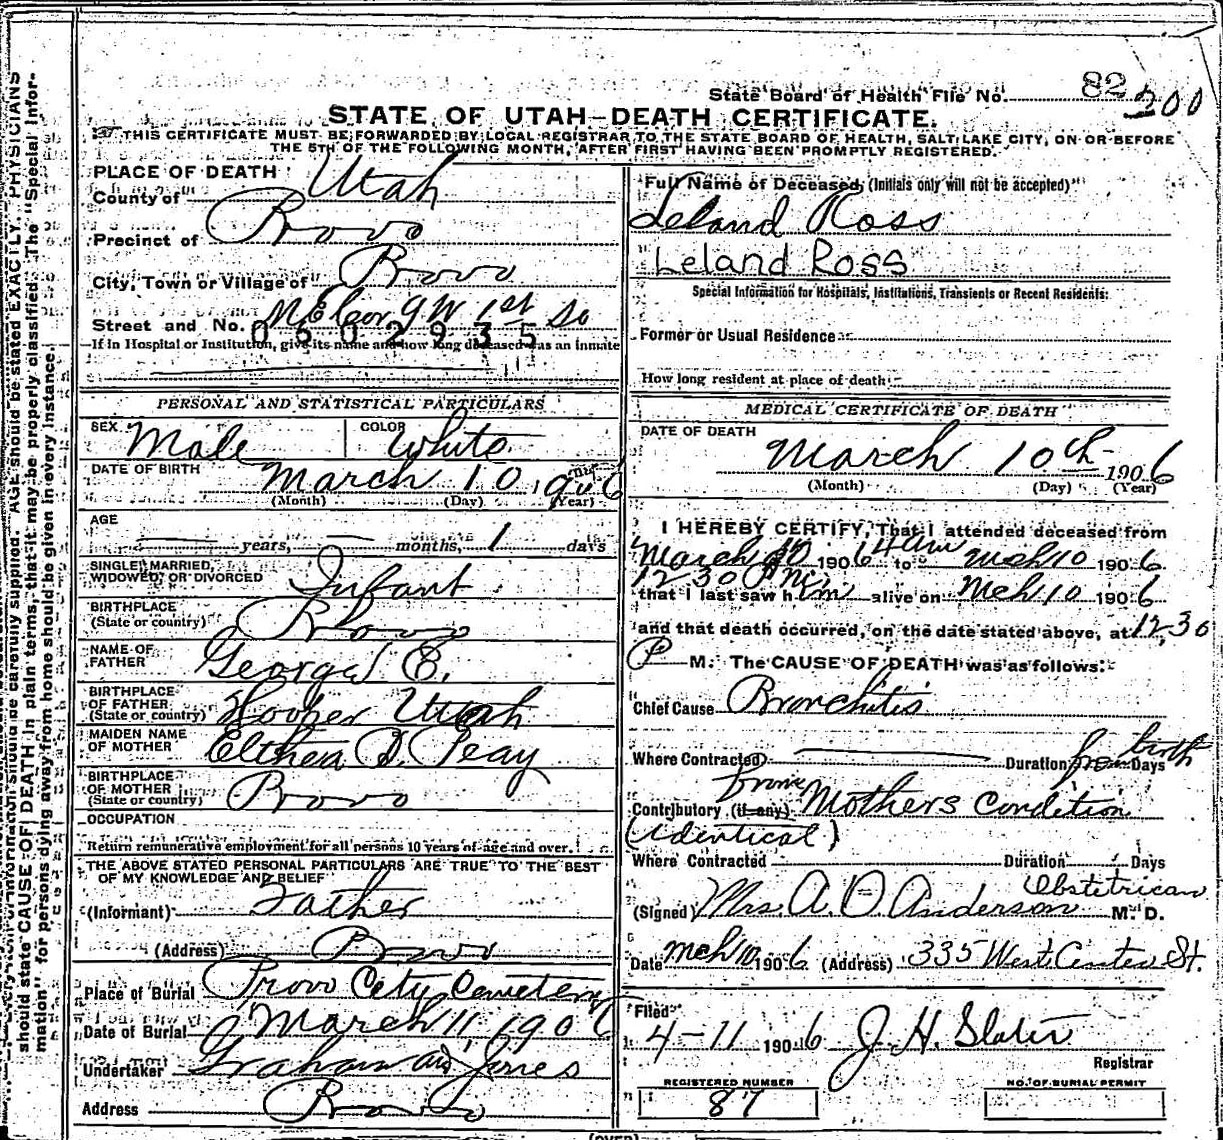 State Board of Health File No. 82 200
STATE OF UTAH—DEATH CERTIFICATE.
THIS CERTIFICATE MUST BE FORWARDED BY LOCAL REGISTRAR TO THE STATE BOARD OF HEALTH, SALT LAKE CITY, ON OR BEFORE
THE 5TH OF THE FOLLOWING MONTH, AFTER FIRST HAVING BEEN PROMPTLY REGISTERED.
PLACE OF DEATH
County of Utah
Precinct of Provo
City, Town or Village of Provo
Street and No. N E Cor 9 W 1st So
0602935
If in Hospital or Institution, give its name and how long deceased was an inmate
PERSONAL AND STATISTICAL PARTICULARS
SEX Male COLOR White
DATE OF BIRTH March 10, 1906
(Month) (Day) (Year)
AGE
— years, — months, 1 days
SINGLE, MARRIED,
WIDOWED, OR DIVORCED Infant
BIRTHPLACE
(State or country) Provo
NAME OF
FATHER George E.
BIRTHPLACE
OF FATHER
(State or country) Hooper Utah
MAIDEN NAME
OF MOTHER Elthea D. Peay
BIRTHPLACE
OF MOTHER
(State or country) Provo
OCCUPATION
Return remunerative employment for all persons 10 years of age and over.
THE ABOVE STATED PERSONAL PARTICULARS ARE TRUE TO THE BEST
OF MY KNOWLEDGE AND BELIEF
(Informant) Father
(Address) Provo
Place of Burial Provo City Cemetery
Date of Burial March 11, 1906
Undertaker Graham and Jones
Address Provo
Full Name of Deceased, (Initials only will not be accepted)
Leland Ross
Leland Ross
Special Information for Hospitals, Institutions, Transients or Recent Residents:
Former or Usual Residence
How long resident at place of death
MEDICAL CERTIFICATE OF DEATH
DATE OF DEATH
March 10th 1906
(Month) (Day) (Year)
I HEREBY CERTIFY, That I attended deceased from
March 10 1906 4 am to Mch 10 1906
12 30 P m
that I last saw him alive on Mch 10 1906
and that death occurred, on the date stated above, at 12,30
P M. The CAUSE OF DEATH was as follows:
Chief Cause Bronchitis
Where Contracted Duration from birth Days
from
Contributory (if any) Mothers Condition
(identical)
Where Contracted Duration Days
Obstetrican
(Signed) Mrs. A. O. Anderson M. D.
Date Mch 10 1906 (Address) 335 West Center St.
Filed
4-11 1906 J. H. Slater
Registrar
REGISTERED NUMBER
87
NO. OF BURIAL PERMIT
(OVER)
information should be carefully supplied. AGE should be stated EXACTLY. PHYSICIANS
should state CAUSE OF DEATH in plain terms, that it may be properly classified. The "Special Infor-
mation" for persons dying away from home should be given in every instance.